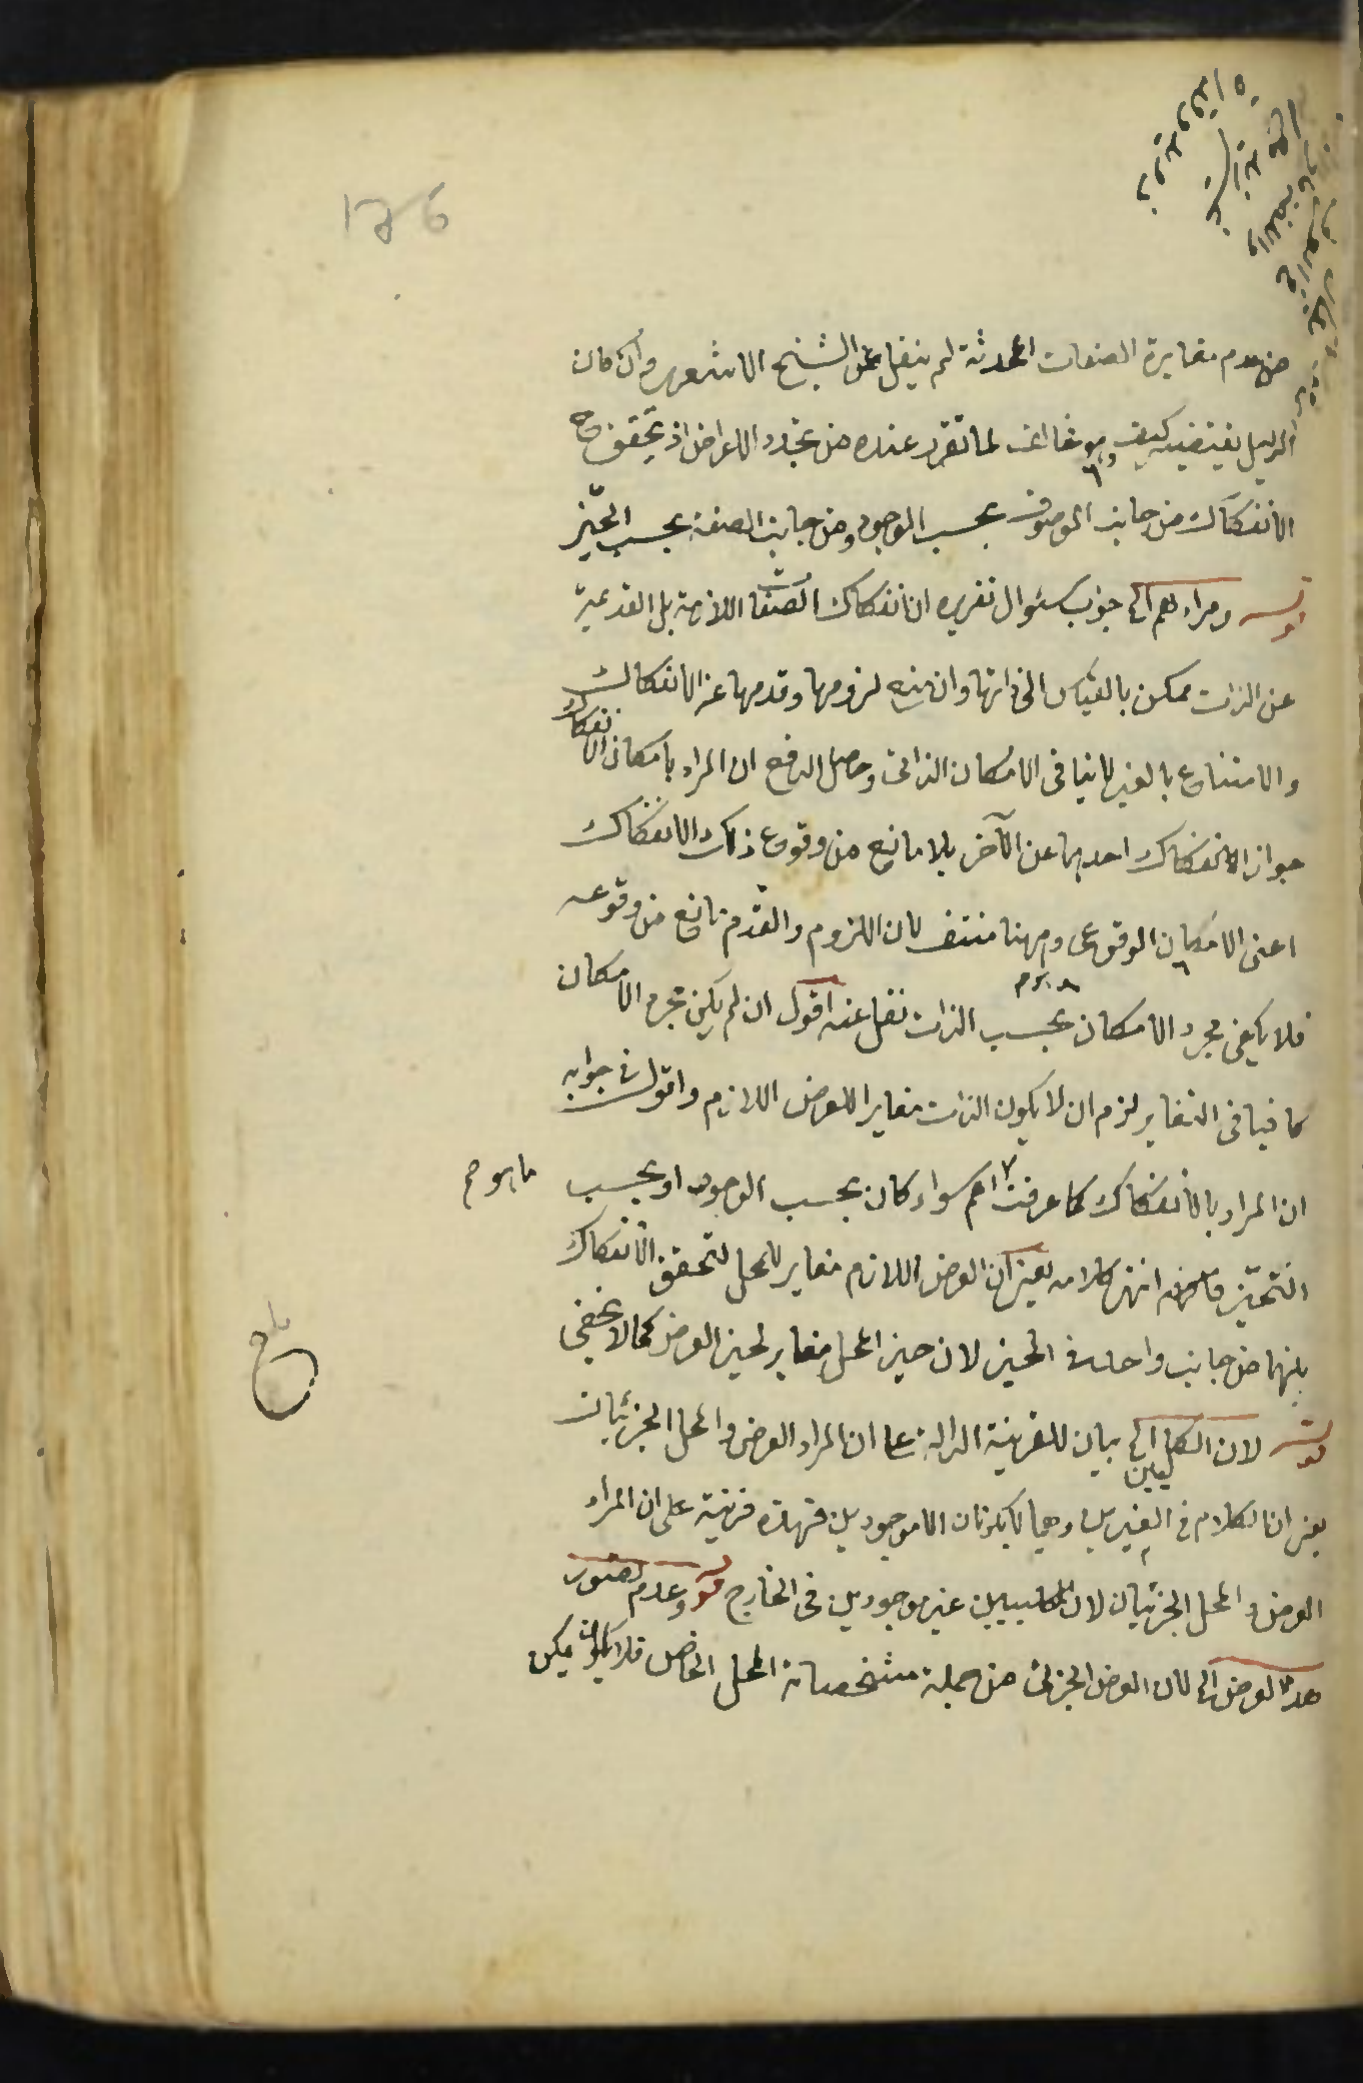 126
من عدم مغايرة الصفات المحدثة لم ينقل عن الشيخ الاشعرى وان كان
الدليل يقتضيه كيف وهو مخالف لما تقرر عنده من تجدد الاعراض اذ يتحقق ح
الانفكاك من جانب الموصوف بحسب الوجود ومن جانب الصفة بحسب الحيّز
قوله ومرادهم الى جواب سئوال تقريره ان انفكاك الصفات اللازمة بل القديمة
عن الذات ممكن بالقياس الى ذاتها وان لزومها وقدمها عن الانفكاك
والامتناع بالغير لا ينافى الامكان الذاتى وحاصل الدفع ان المراد بامكان الانفكاك
جواز الانفكاك احديهما عن الآخر بلا مانع من وقوع ذلك الانفكاك
اعنى الامكان الوقوعى وههنا منتف لان اللزوم والقدم مانع من وقوعه
فلا يكفى مجرد الامكان بحسب الذات نقل عنه اقول ان لم يكن مجرد الامكان
كافيا فى التغاير لزم ان لا يكون الذات مغايرا للعرض اللازم واقول فى جوابه
ان المراد بالانفكاك كما عرفت اعم سواء كان بحسب الوجود او بحسب
ما هو م
التحيّز انتهى كلامه يعنى ان العرض اللازم مغاير للمحل لتحقق الانفكاك
بينهما من جانب واحد فى الحيز لان حيز المحل مغاير لحيز العرض كما لا يخفى
قوله لان الكلام الى بيان للقرينة الدالة على ان المراد العرض والمحل الجزئيان
يعنى ان الكلام فى الغيرين وهما لا يكونان الا موجودين فهذه قرينة على ان المراد
العرض والمحل الجزئيان لان الكليين غير موجودين فى الخارج قوله وعدم تصور
هذا العرض الى لان العرض الجزئى من جملة مشخصاته المحل الخاص فلا يمكن